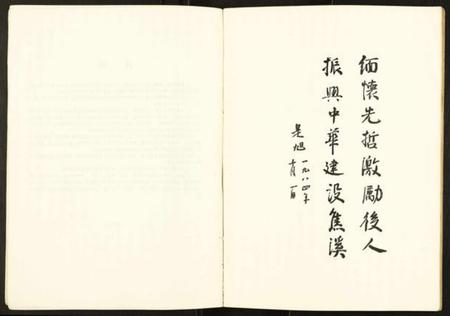 缅懷先哲激勵後人
振興中華建设焦溪
是旭
一九八四年
十月一日